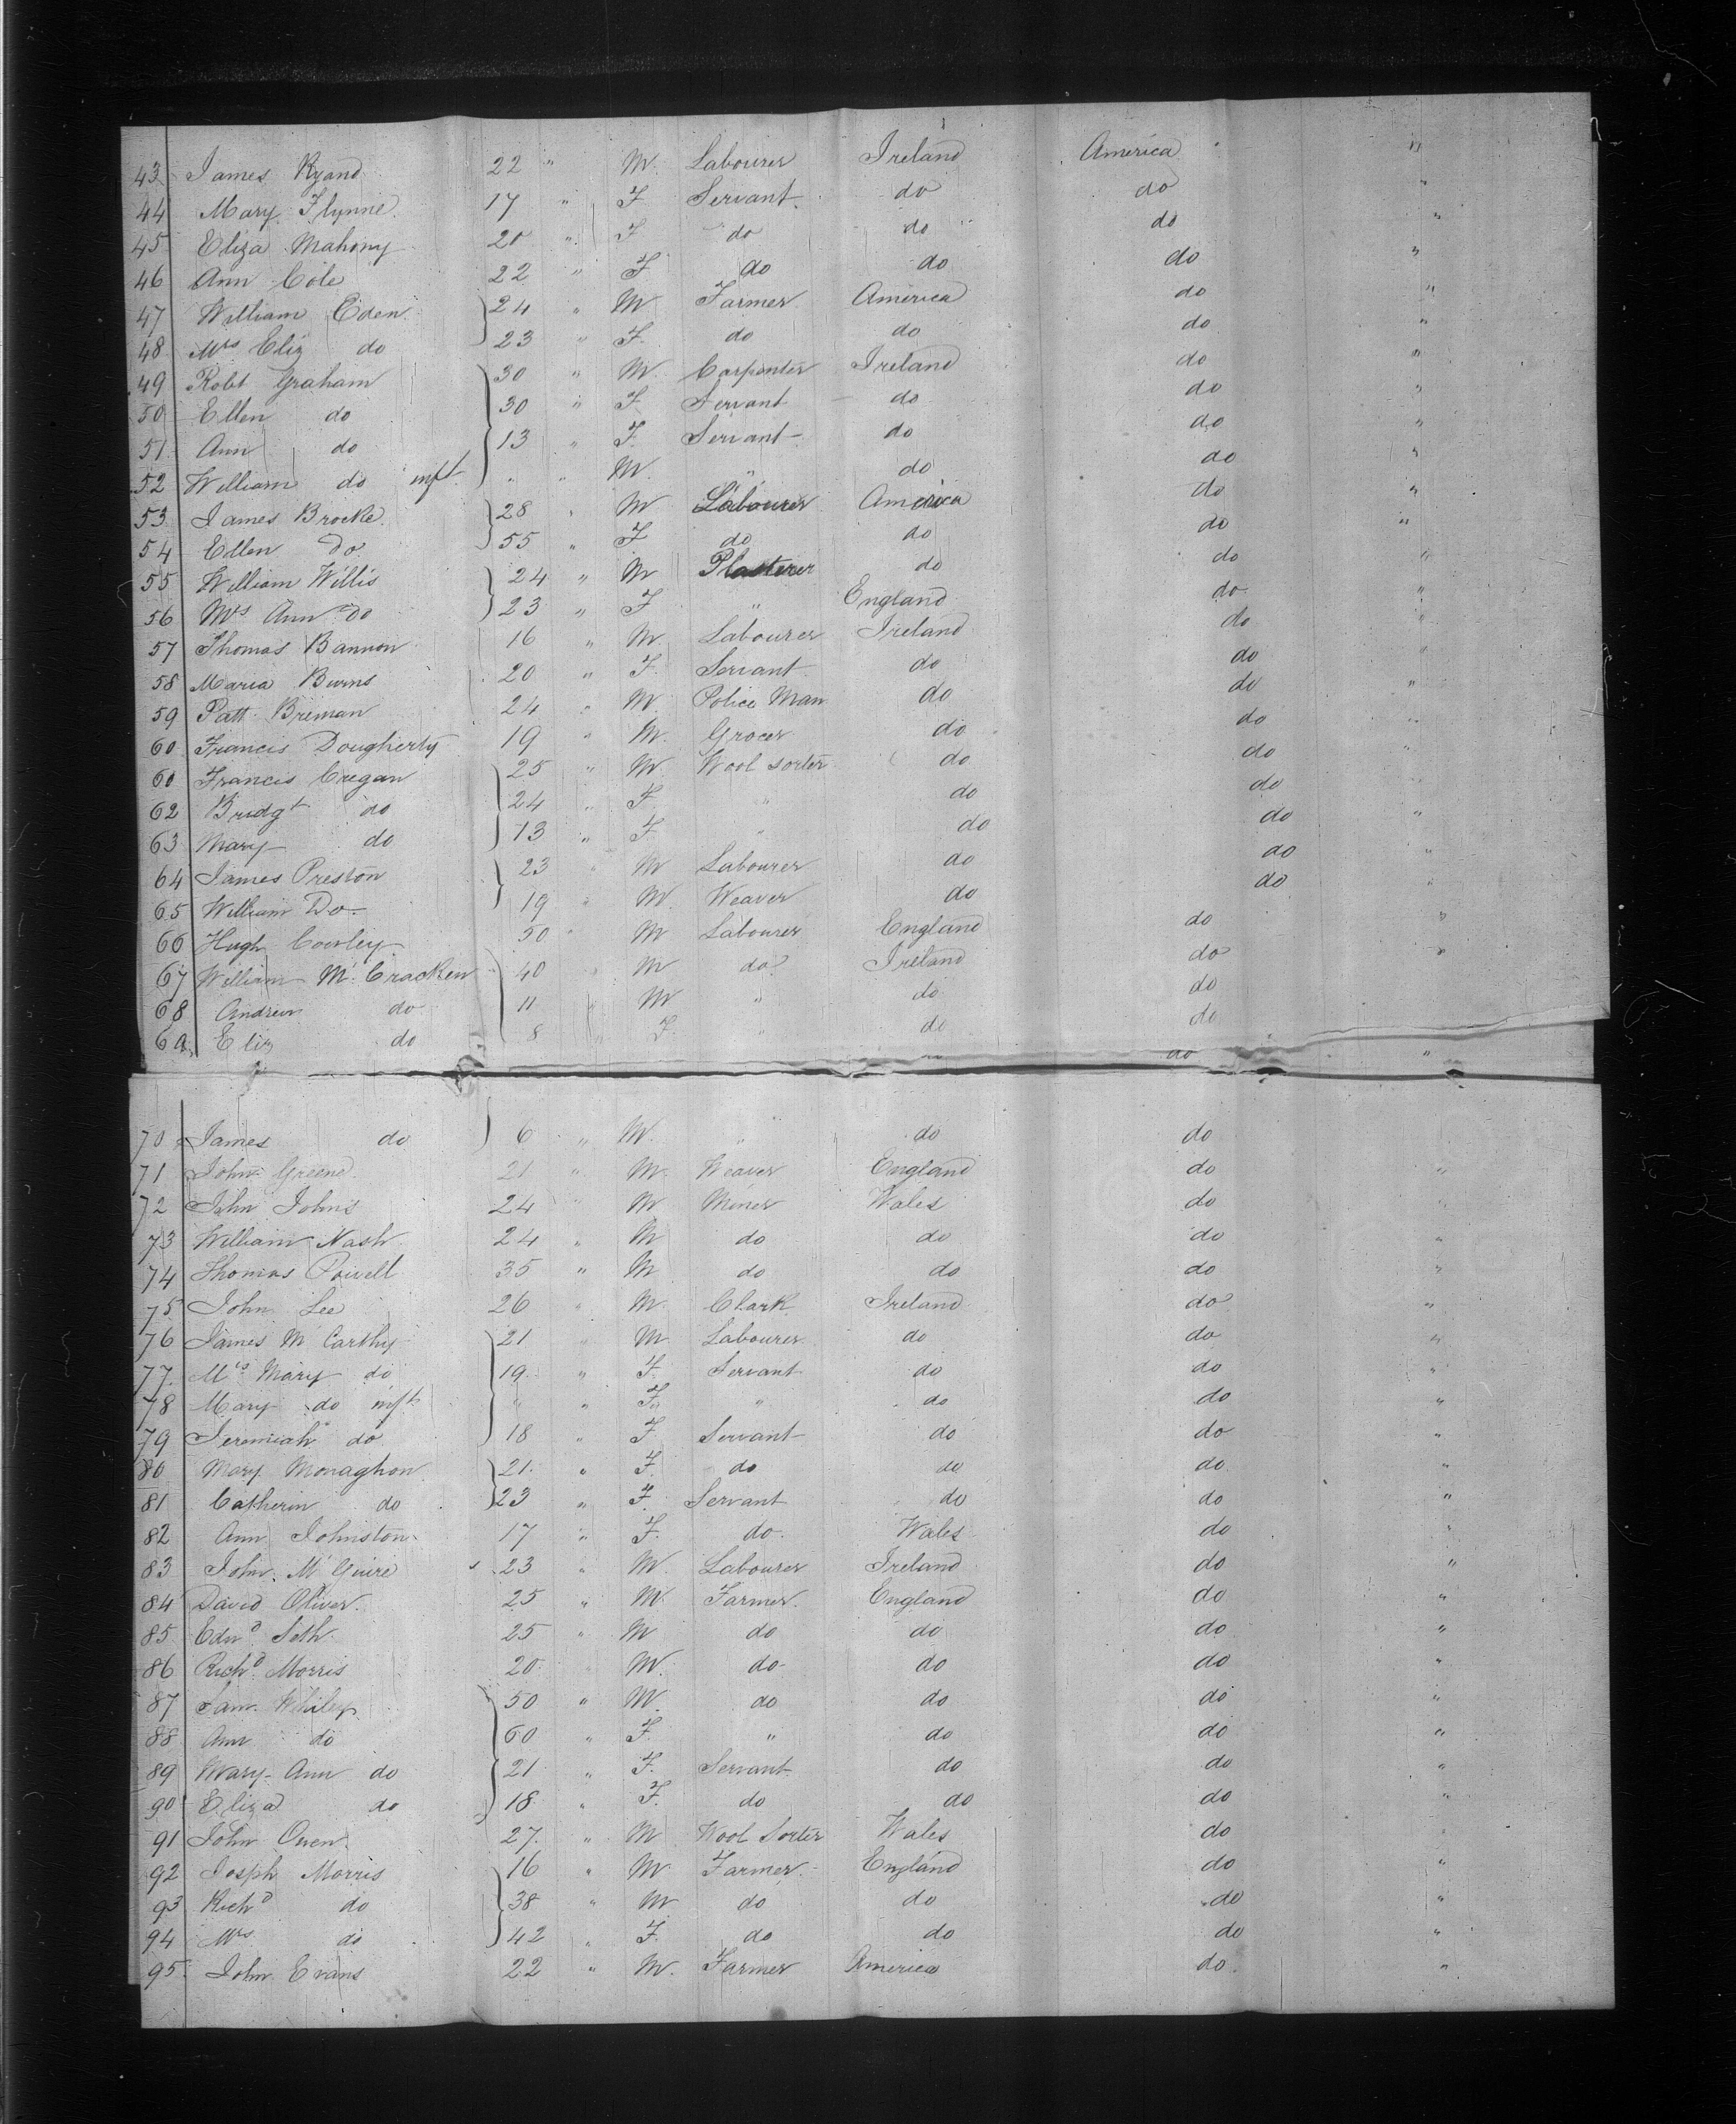 43 James Ryand 22 " M. Labourer Ireland America "
44 Mary Flynne 17 " F Servant do do "
45 Eliza Mahony 20 " F do do do "
46 Ann Cole 22 " F do do do "
47 William Eden 24 " M Farmer America do "
48 Mrs Eliz do 23 " F. do do do "
49 Robt Graham 30 " M. Carpenter Ireland do "
50 Ellen do 30 " F Servant do do "
51 Ann do 13 " F. Servant do do "
52 William do inft " " M. " do do "
53 James Brocke 28 " M Labourer America do "
54 Ellen Do 55 " F do do do "
55 William Willis 24 " M Plasterer do do "
56 Mrs Ann Do 23 " F " England do "
57 Thomas Bannon 16 " M. Labourer Ireland do "
58 Maria Burns 20 " F. Servant do do "
59 Patt Breman 24 " M. Police Man do do "
60 Francis Dougherty 19 " M. Grocer do do "
60 Francis Cregan 25 " M. Wool sorter do do "
62 Bridgt do 24 " F. " do do
63 Mary do 13 " F. " do do "
64 James Preston 23 " M Labourer do do "
65 William Do 19 " M. Weaver do do "
66 Hugh 50 " M Labourer England do "
67 William McCracken 40 " M do Ireland do "
68 Andrew do 11 " M " do do
69 Eliz do 8 " F. " do do
do "
70 James do 6 " M. " do do
71 John Greend 21 " M. Weaver England do "
72 John Johns 24 " M Miner Wales do "
73 William Nash 24 " M do do do "
74 Thomas Powell 35 " M do do do "
75 John Lee 26 " M. Clark Ireland do "
76 James McCarthy 21 " M Labourer do do "
77 Mrs Mary do 19 " F. Servant do do "
78 Mary do inft " " F. " do do "
79 Jeremiah do 18 " F Servant do do "
80 Mary Monaghon 21 " F. do do do "
81 Catherin do 23 " F. Servant do do "
82 Ann Johnston 17 " F. do Wales do "
83 John McGuire 23 " M. Labourer Ireland do "
84 David Oliver 25 " M. Farmer. England do "
85 Edwd Seth 25 " M do do do "
86 Richd Morris 20 " M. do do do "
87 Sam. Whiley 50 " M. do do do "
88 Ann do 60 " F. " do do "
89 Mary Ann do 21 " F. Servant do do "
90 Eliza do 18 " F. do do do "
91 John Owen 27 " M Wool Sorter Wales do "
92 Joseph Morris 16 " M Farmer England do "
93 Richd do 38 " M do do do "
94 Mrs do 42 " F. do do do "
95 John Evans 22 " M. Farmer America do "